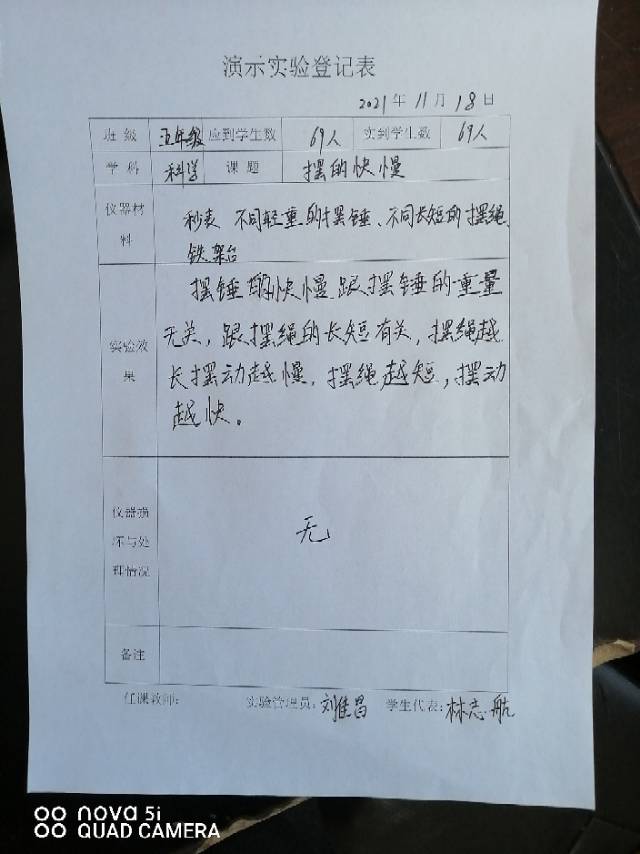 演示实验登记表
2021年11月18日
班级 五年级 应到学生数 69人 实到学生数 69人
学科 科学 课题 摆的快慢
仪器材料 秒表 不同轻重的摆锤、不同长短的摆绳、
铁架台
摆锤的快慢跟摆锤的重量
无关，跟摆绳的长短有关，摆绳越
实验效果
长摆动越慢，摆绳越短，摆动
越快。
仪器损坏与处理情况 无
备注
任课教师： 实验管理员：刘佳昌 学生代表：林志航
nova 5i
QUAD CAMERA